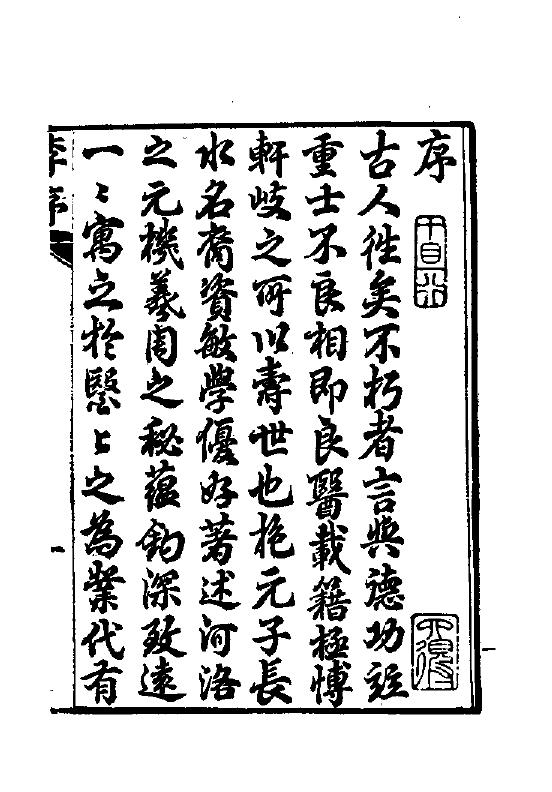 序
古人徃矣不朽者言與德功竝
重士不良相即良醫載籍極愽
軒岐之所以壽世也抱元子長
水名裔資敏學優好著述河洛
之元機羲周之秘蘊鈎深致遠
一〻寓之扵醫〻之為業代有
李序
一